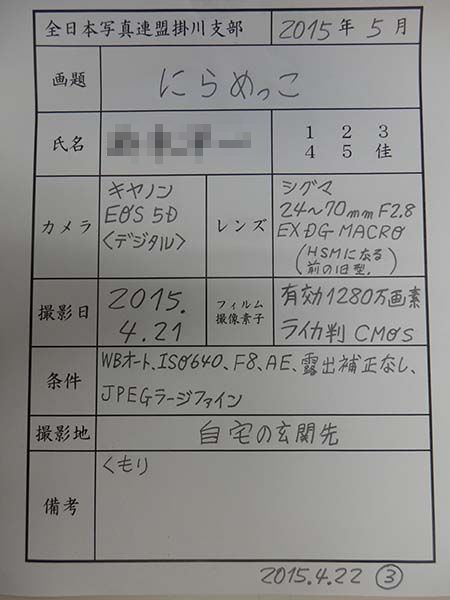 全日本写真連盟掛川支部 2015年5月
画題 にらめっこ
氏名
1 2 3
4 5 佳
カメラ
キヤノン
EOS 5D
〈デジタル〉
レンズ
シグマ
24〜70mm F2.8
EX DG MACRO
(HSMになる
前の旧型.)
撮影日
2015.
4.21
フィルム
撮像素子
有効1280万画素
ライカ判 CMOS
条件
WBオート、ISO640、F8、AE、露出補正なし、
JPEGラージファイン
撮影地 自宅の玄関先
備考
くもり
2015.4.22 ③